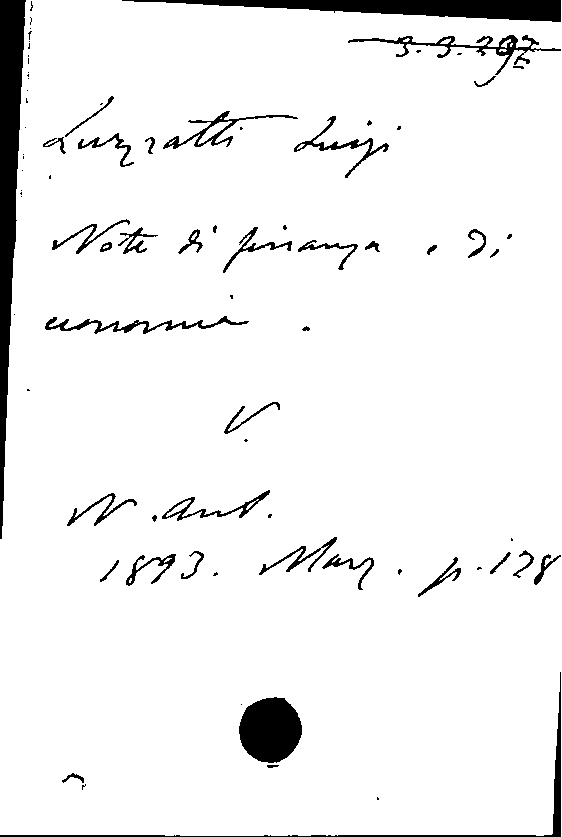 3.3.297
Luzzatti Luigi
Note di finanza e di
economia.
V.
N. Ant.
1893. Marz. p. 128